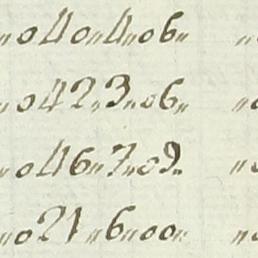 „040„4„06„ „
„042„3„06„ „
„046„7„09„ „
„021„6„00„ „